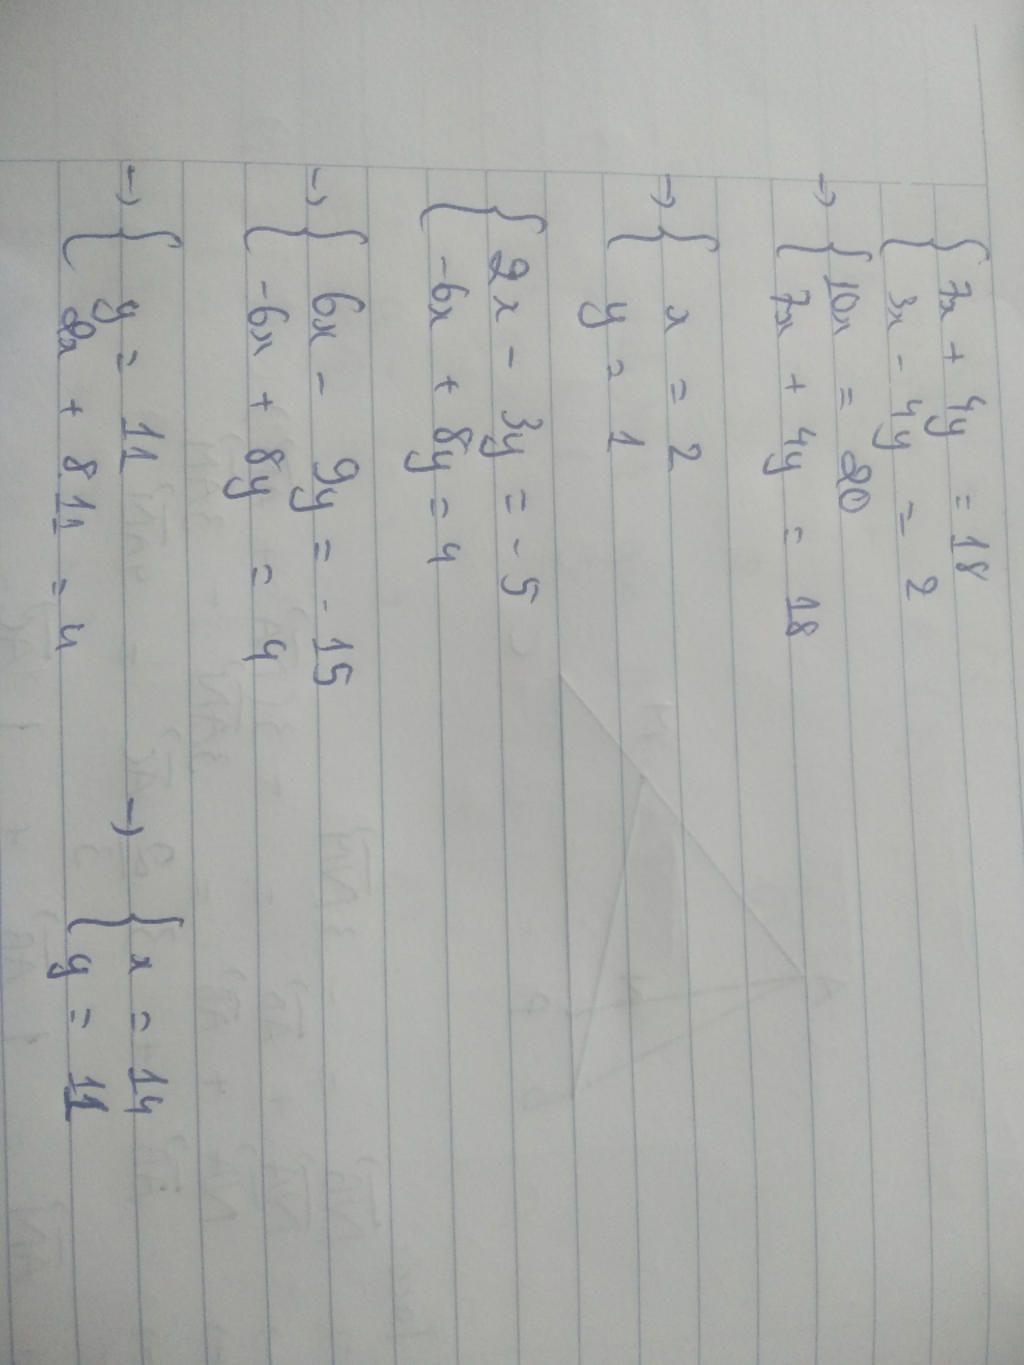 { 7x + 4y = 18
{ 3x - 4y = 2
→ { 10x = 20
{ 7x + 4y = 18
→ { x = 2
{ y = 1
{ 2x - 3y = -5
{ -6x + 8y = 4
→ { 6x - 9y = -15
{ -6x + 8y = 4
→ { y = 11 → { x = 14
{ + 8.11 = 4 { y = 11